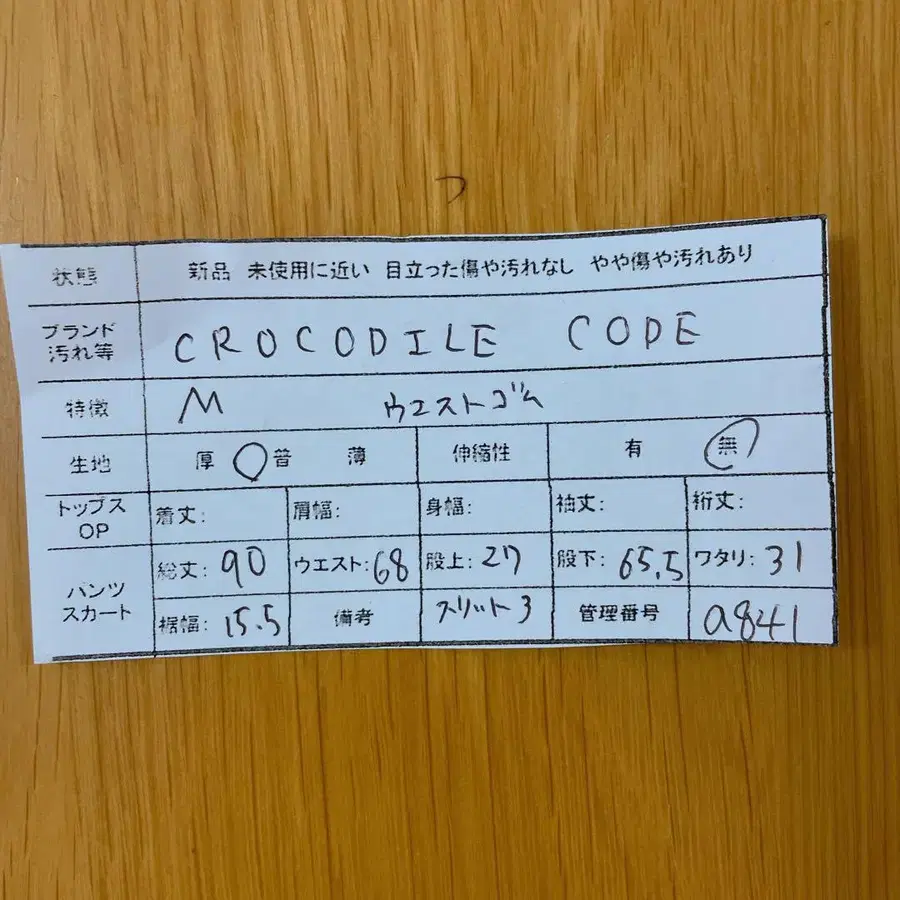 状態 新品 未使用に近い 目立った傷や汚れなし やや傷や汚れあり
ブランド
汚れ等 CROCODILE CODE
特徴 M ウエストゴム
生地 厚 普 薄 伸縮性 有 無
トップス
OP 着丈: 肩幅: 身幅: 袖丈: 裄丈:
パンツ
スカート 総丈: 90 ウエスト: 68 股上: 27 股下: 65.5 ワタリ: 31
裾幅: 15.5 備考 スリット3 管理番号 a841